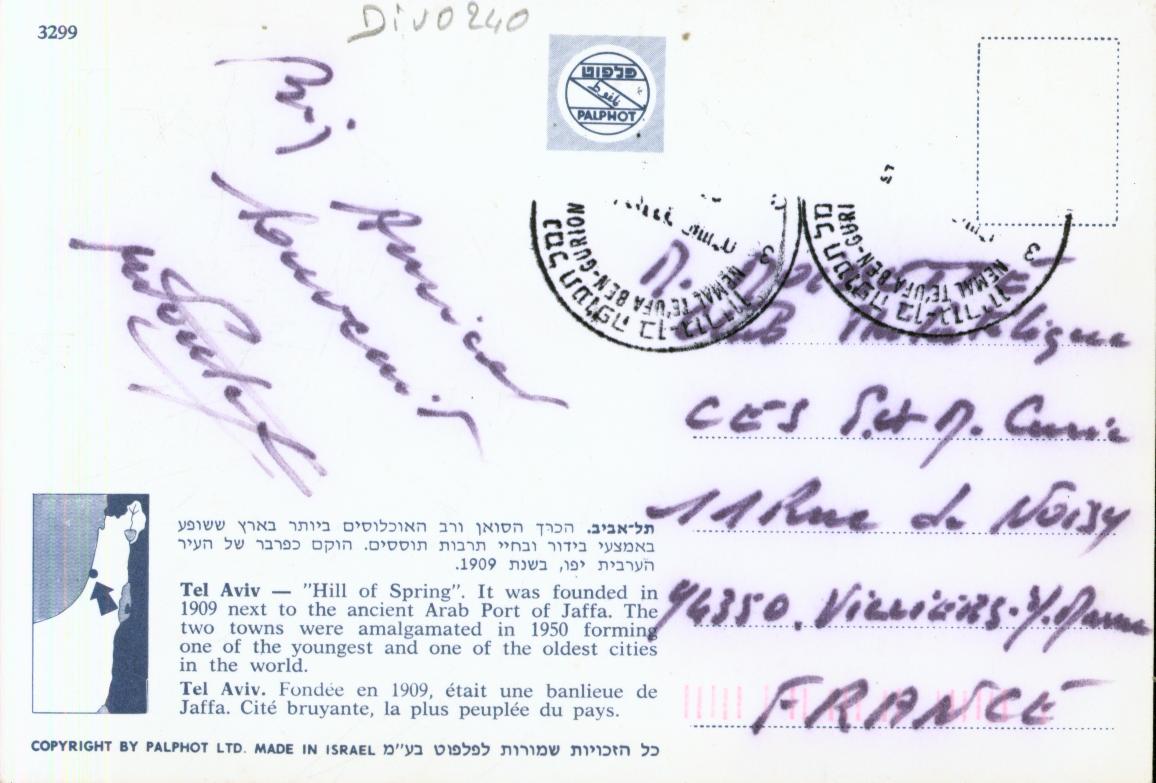 3299
DIVO240
פלפוט
PALPHOT
Amical
Souvenir
נמל התעופה בן-גוריון
NEMAL TE'UFA BEN-GURION
נמל התעופה בן-גוריון
NEMAL TE'UFA BEN-GURI
Club Philatélique
CES P. et M. Curie
11 Rue de Noisy
94350. VILLIERS. s/. Marne
FRANCE
תל-אביב. הכרך הסואן ורב האוכלוסים ביותר בארץ ששופע
באמצעי בידור ובחיי תרבות תוססים. הוקם כפרבר של העיר
הערבית יפו, בשנת 1909.
Tel Aviv — "Hill of Spring". It was founded in
1909 next to the ancient Arab Port of Jaffa. The
two towns were amalgamated in 1950 forming
one of the youngest and one of the oldest cities
in the world.
Tel Aviv. Fondée en 1909, était une banlieue de
Jaffa. Cité bruyante, la plus peuplée du pays.
COPYRIGHT BY PALPHOT LTD. MADE IN ISRAEL כל הזכויות שמורות לפלפוט בע"מ